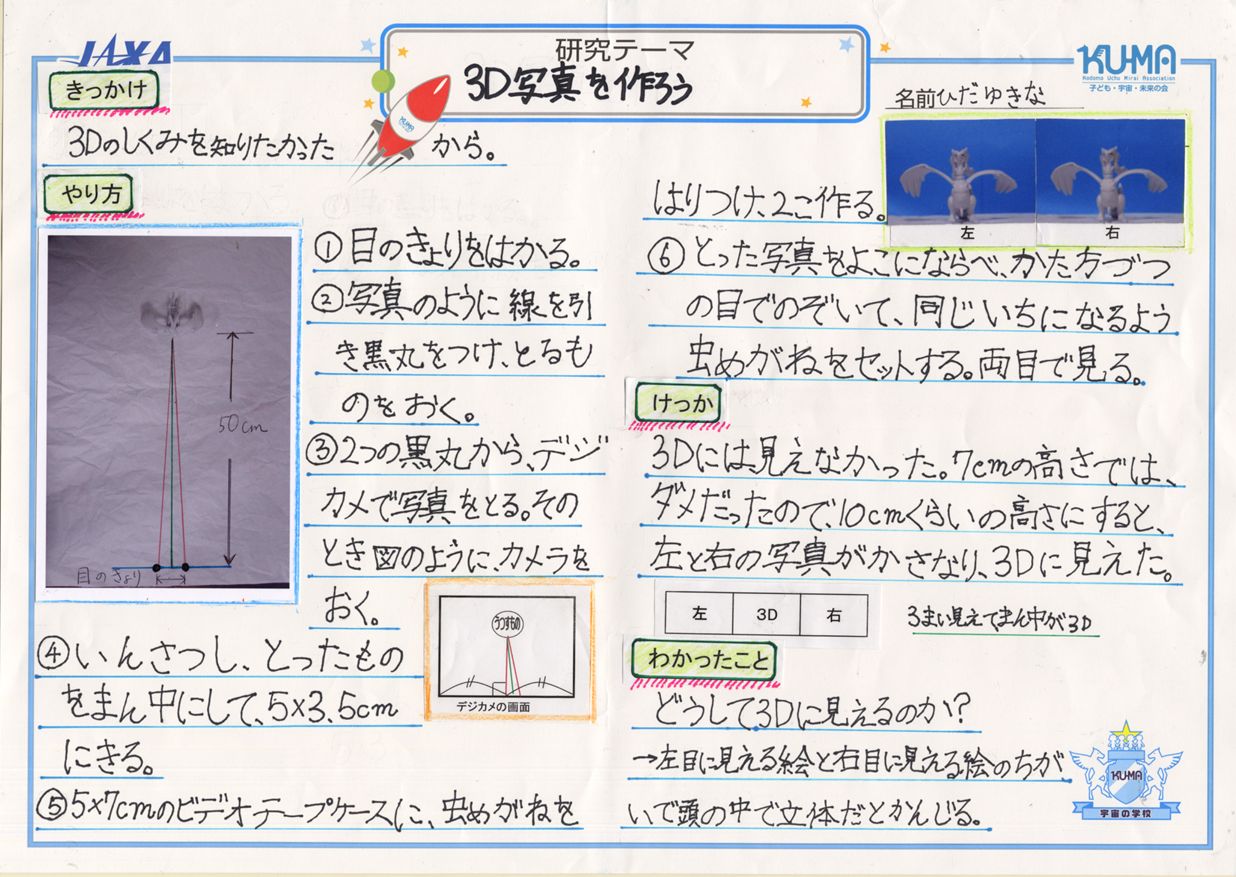 JAXA
研究テーマ
3D写真を作ろう
KUMA
KU-MA
Kodomo Uchu Mirai Association
子ども・宇宙・未来の会
名前ひだゆきな
きっかけ
3Dのしくみを知りたかったから。
やり方
50cm
目のきょり
①目のきょりをはかる。
②写真のように線を引
き黒丸をつけ、とるも
のをおく。
③2つの黒丸から、デジ
カメで写真をとる。その
とき図のように、カメラを
おく。
うつすもの
デジカメの画面
④いんさつし、とったもの
をまん中にして、5×3.5cm
にきる。
⑤5×7cmのビデオテープケースに、虫めがねを
はりつけ、2こ作る。
左 右
⑥とった写真をよこにならべ、かた方づつ
の目でのぞいて、同じいちになるよう
虫めがねをセットする。両目で見る。
けっか
3Dには見えなかった。7cmの高さでは、
ダメだったので、10cmくらいの高さにすると、
左と右の写真がかさなり、3Dに見えた。
左 3D 右
3まい見えてまん中が3D
わかったこと
どうして3Dに見えるのか?
→左目に見える絵と右目に見える絵のちが
いで頭の中で立体だとかんじる。
KUMA
宇宙の学校